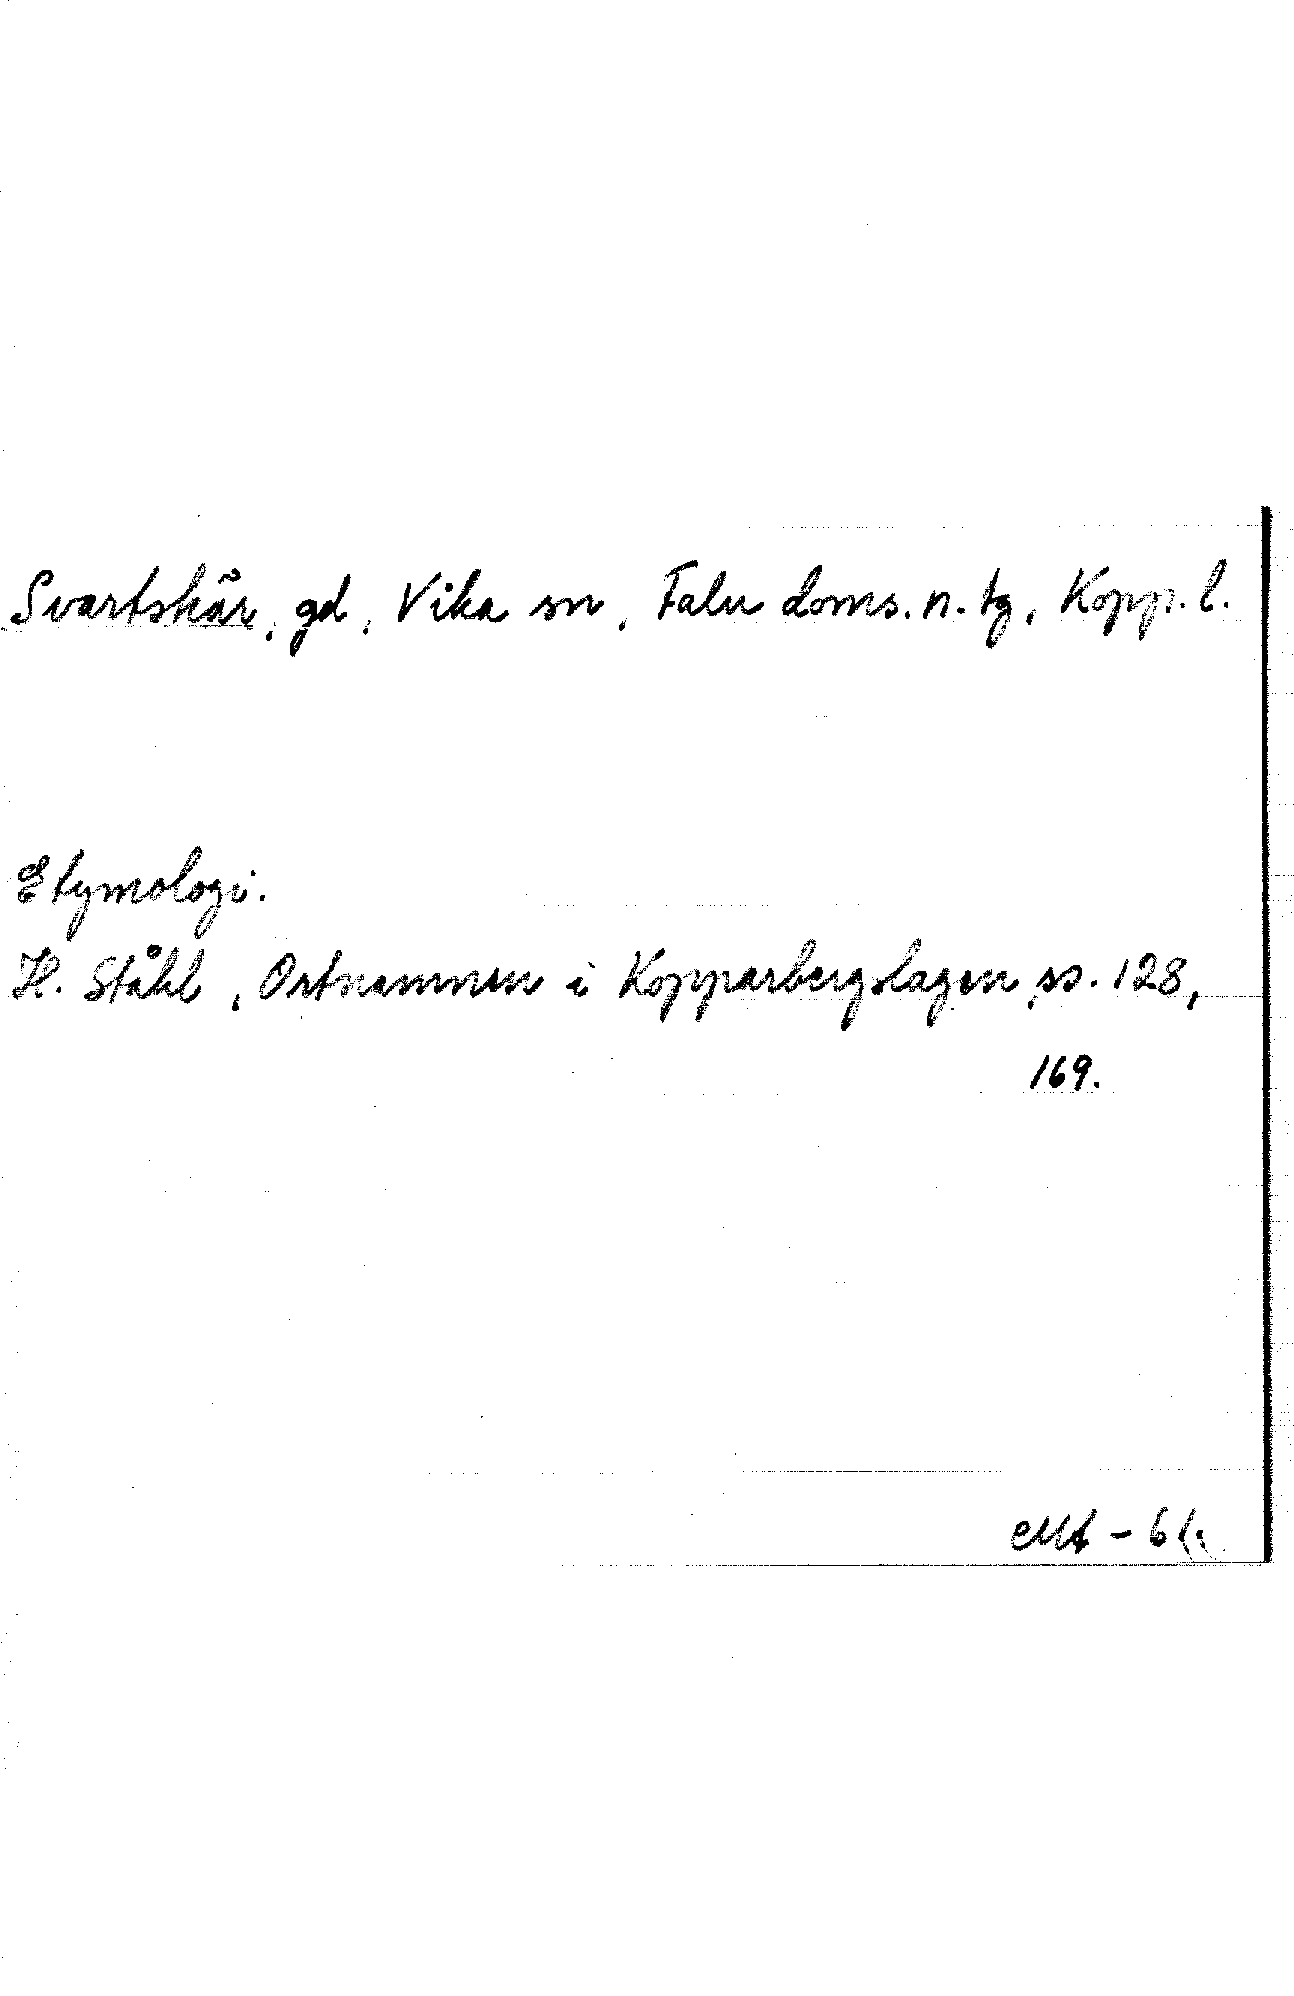 Svartskär, gd, Vika sn, Falu doms. n. tg, Kopp. l.
Etymologi.
H. Ståhl, Ortnamnen i Kopparbergslagen, ss. 128,
169.